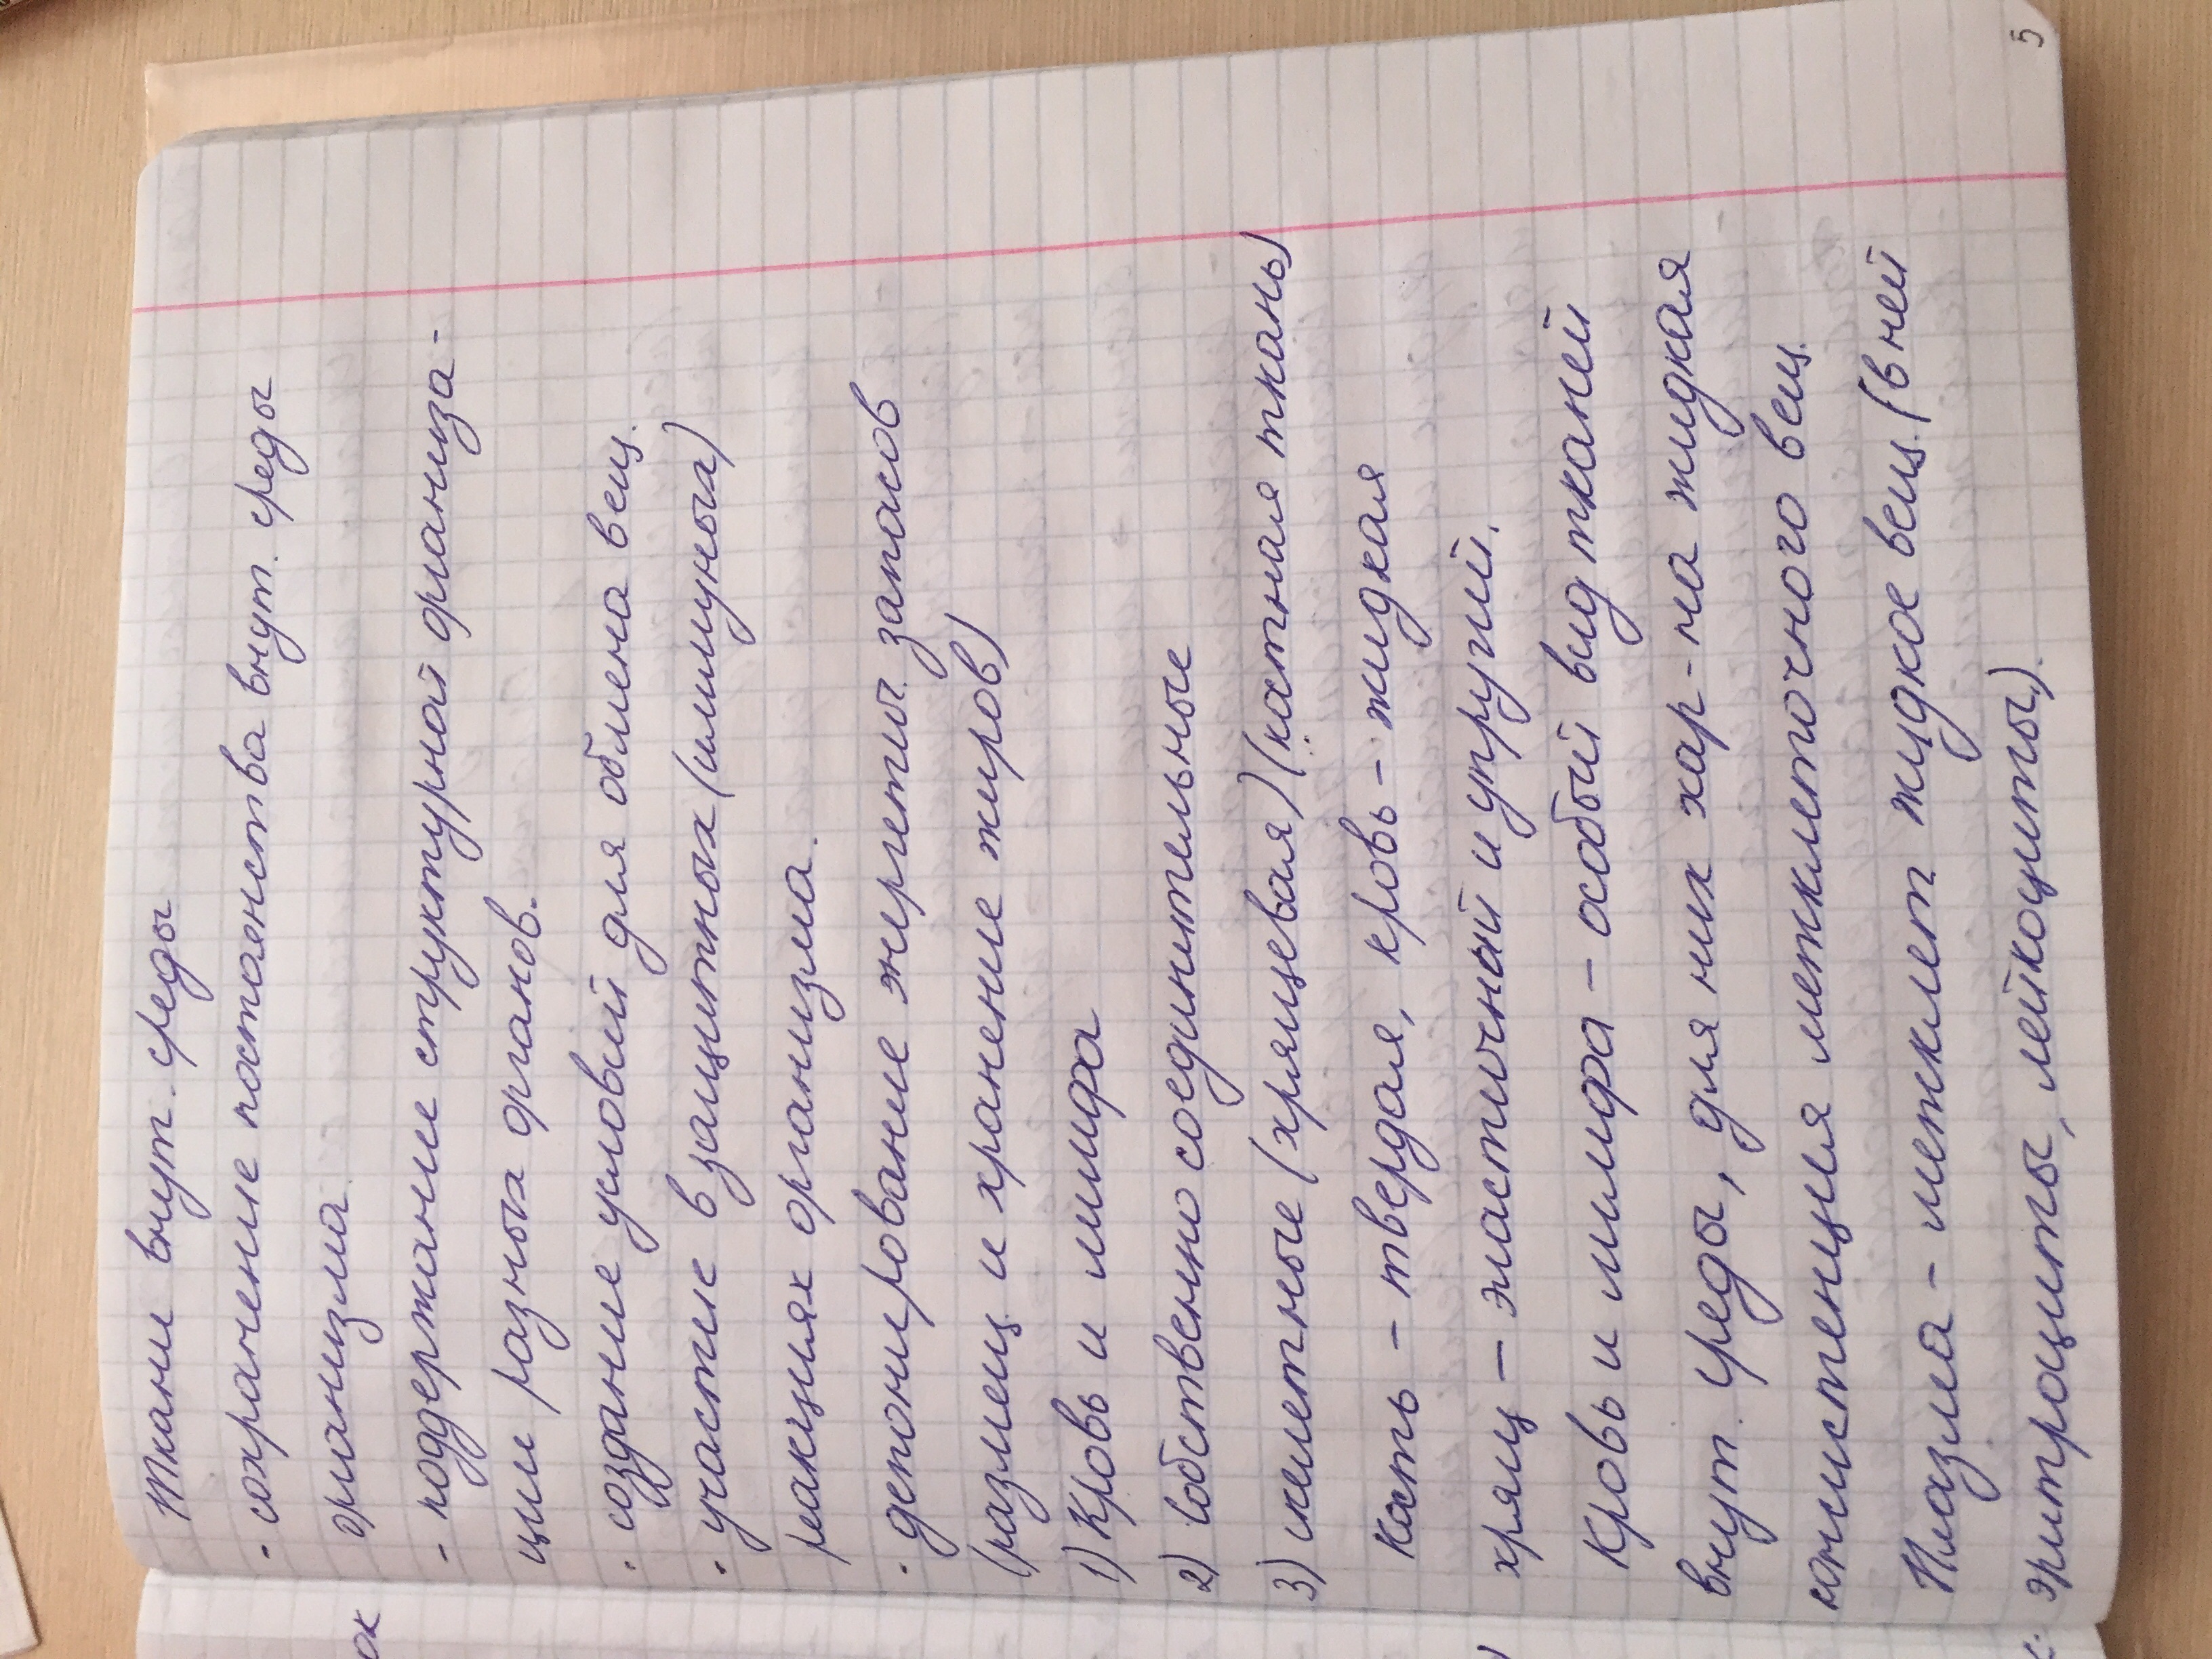 Ткани внут. среды
· сохранение постоянства внут. среды
организма
- поддержание структурной организа-
ции разных органов.
· создание условий для обмена вещ.
· участие в защитных (иммунных)
реакциях организма.
· депонирование энергетич. запасов
(размещ. и хранение жиров)
1) Кровь и лимфа
2) Собственно соединительные
3) скелетные (хрящевая) (костная ткань)
Кость - твердая, кровь - жидкая
хрящ - эластичный и упругий.
Кровь и лимфа - особый вид тканей
внут. среды, для них хар-на жидкая
консистенция межклеточного вещ.
Плазма - межклет жидкое вещ. (в ней
эритроциты, лейкоциты).
5
ок
)
к.